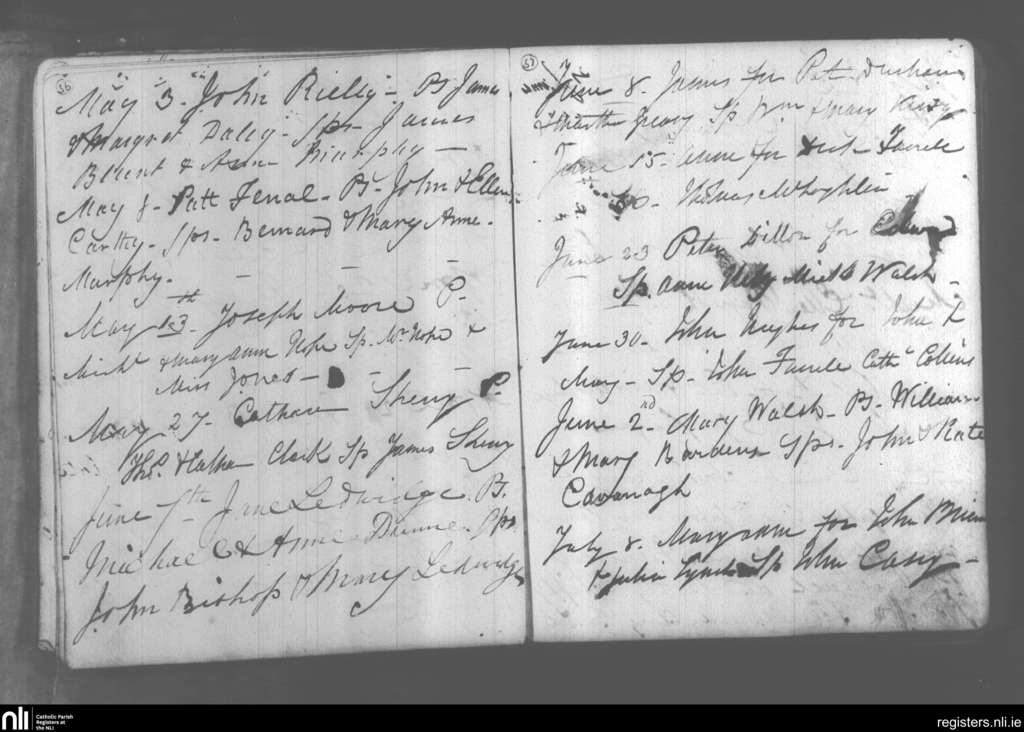 56
May 3. John Rielly - Ps James
& Margret Daley - Sps. James
Blunt & Ann Murphy —
May 8 - Patt Fenal - Ps. John & Ellen
Carthy - Sps. Bernard & Mary Anne
Murphy. — — —
May 13th Joseph Moore P.
Michl & Mary ann Hope Sp. Mr Hope &
Miss Jones —
May 27. Cathane Sherry P.
Thos. & Cathn Clark Sp James Sherry
June 7th Jane Ledwidge. Ps.
Michael & Anne Dunne. Sps
John Bishop & Mary Ledwidge
57
June 8. James for Pat
& Sp Wm & Mary
June 15. Anne for &
Thomas McLoghlin
June 23 Peter Dillon for Edward
Sp. Anne Michl Walsh -
June 30 - John Hughes for John &
Mary - Sp - John Farrele Cathe Collins
June 2nd Mary Walsh - Ps. William
& Mary Sps. John & Kate
Cavanagh
July 8. Mary ann for John Brien
& Julia Lynch Sp John Casey -
nli
Catholic Parish
Registers at
the NLI
registers.nli.ie